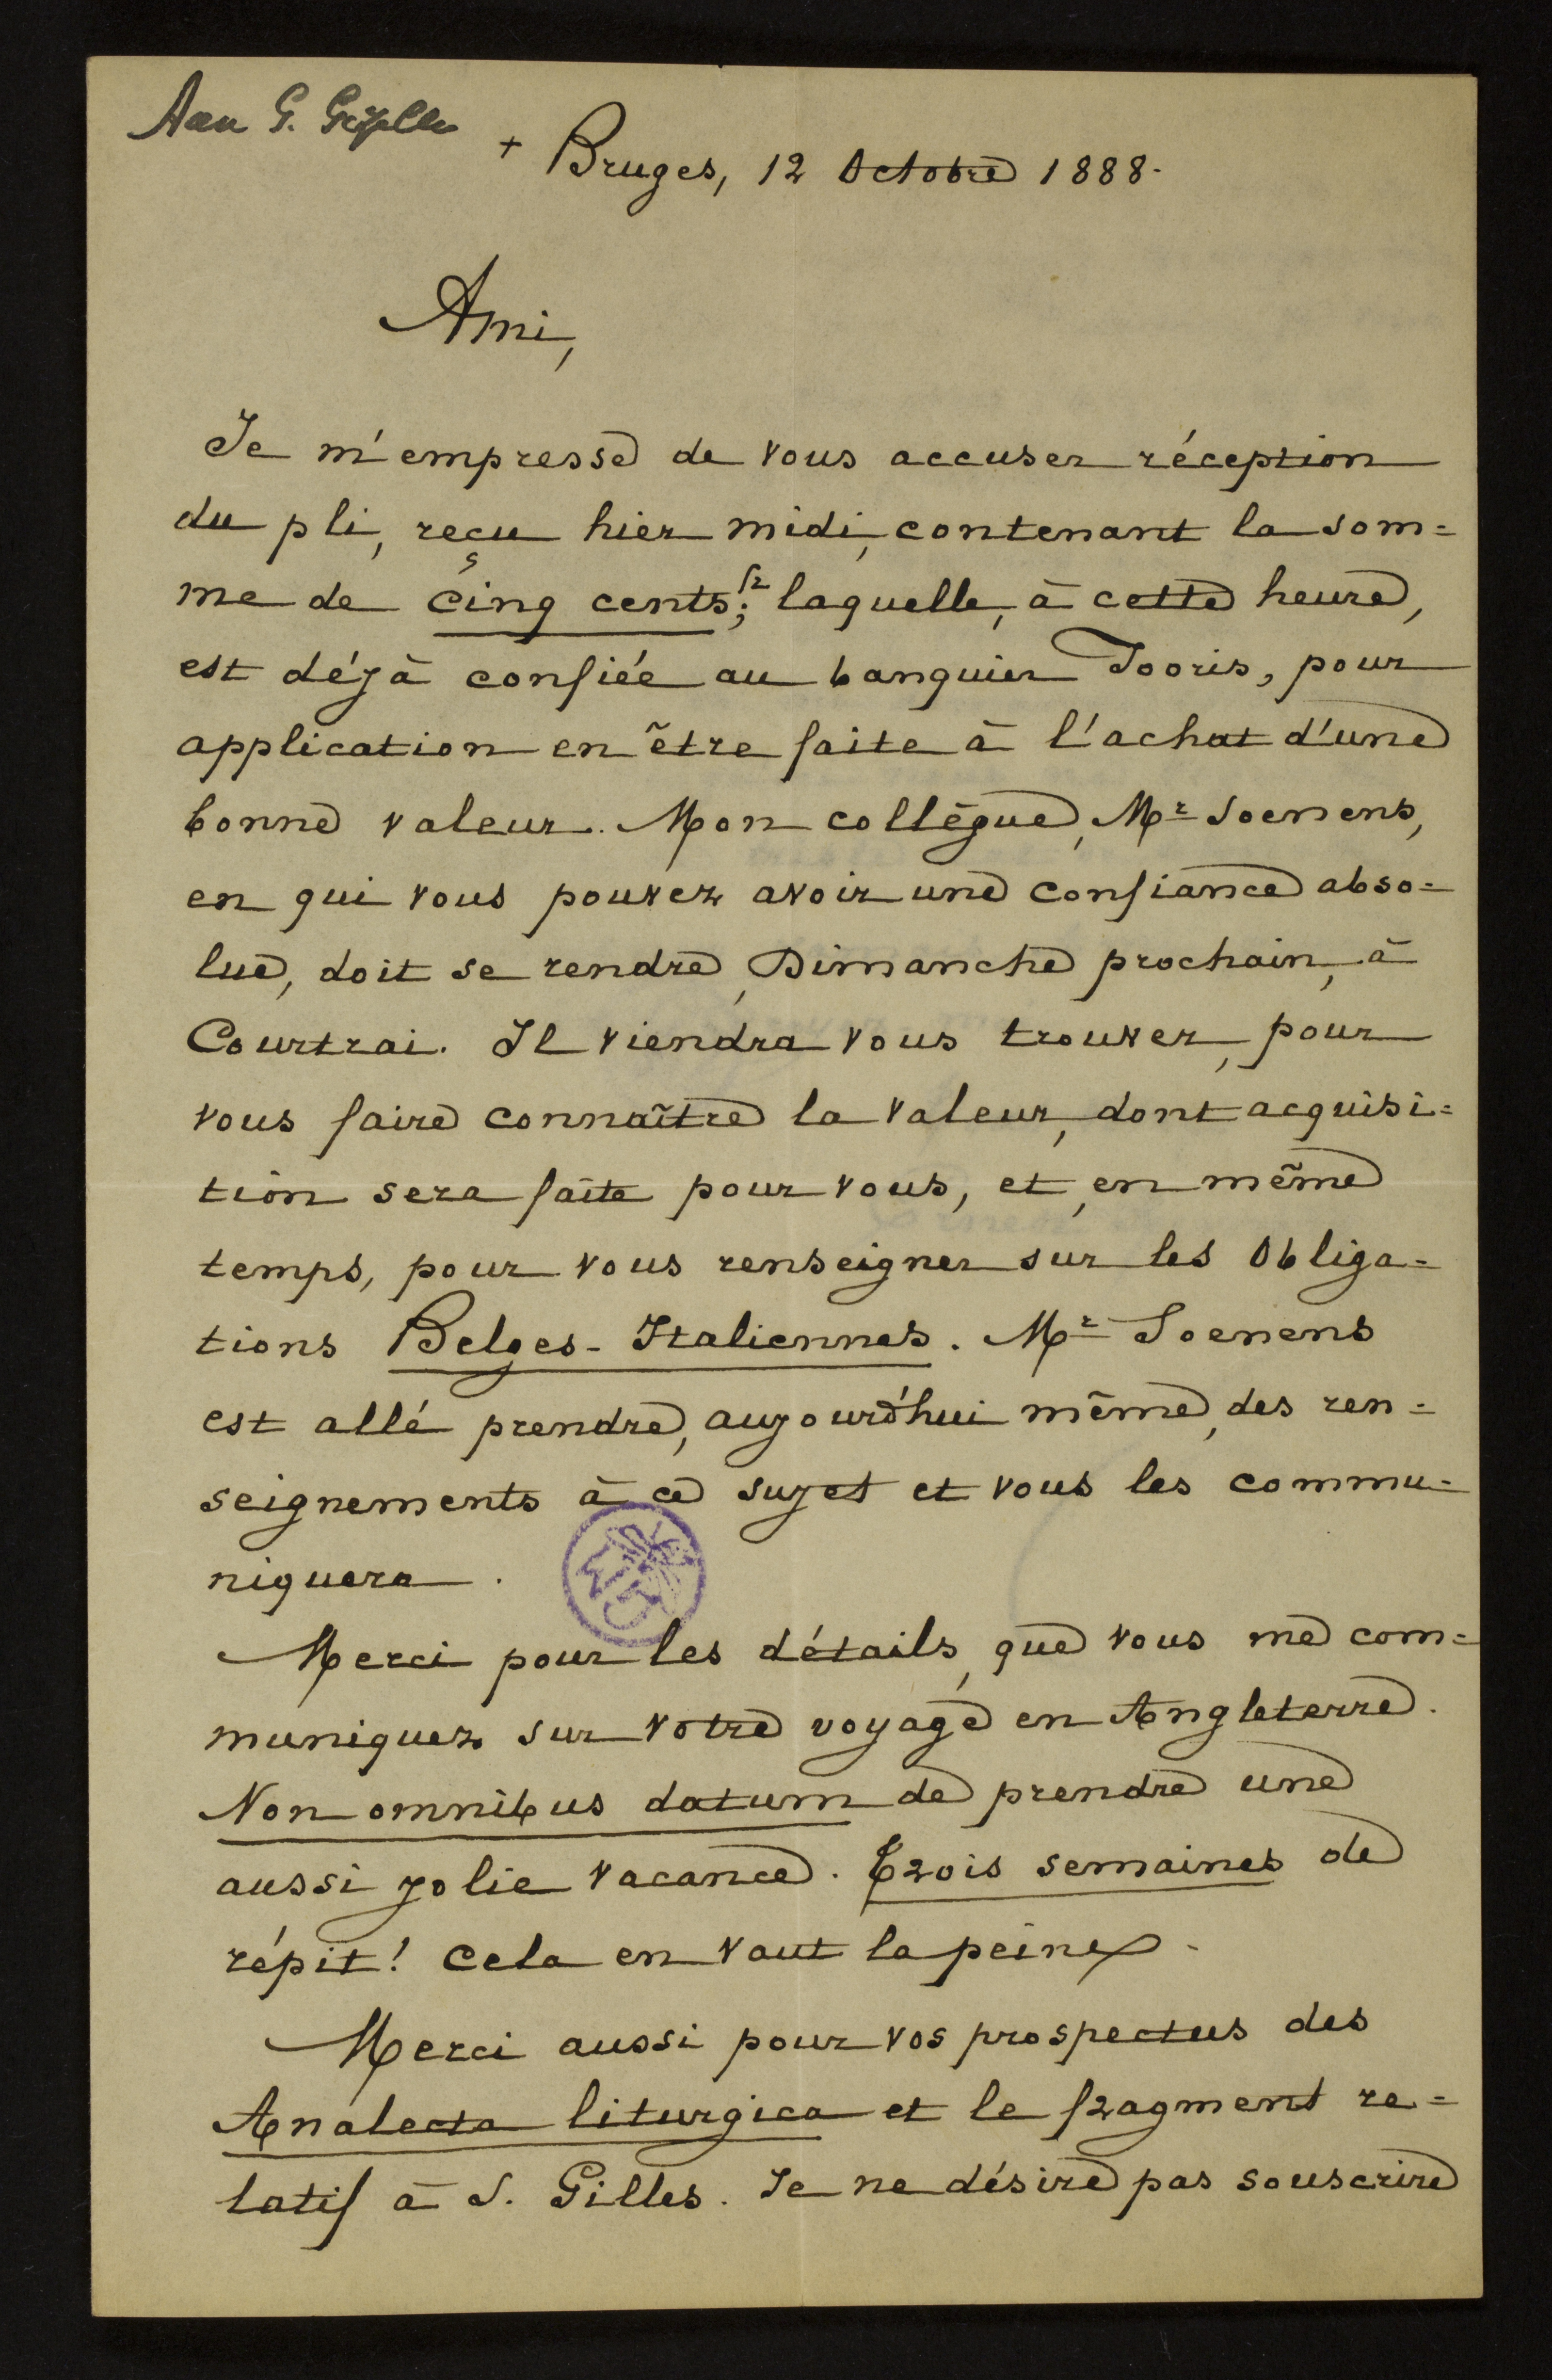 Aan G. Gezelle
+ Bruges, 12 Octobre 1888.
Ami,
Je m'empresse de vous accuser réception
du pli, reçu hier midi, contenant la som=
me de cinq cents fr; laquelle, à cette heure,
est déjà confiée au banquier Tooris, pour
application en être faite à l'achat d'une
bonne valeur. Mon collègue, Mr Soenens,
en qui vous pouvez avoir une confiance abso=
lue, doit se rendre, Dimanche prochain, à
Courtrai. Il viendra vous trouver, pour
vous faire connaître la valeur, dont acquisi=
tion sera faite pour vous, et, en même
temps, pour vous renseigner sur les Obliga=
tions Belges-Italiennes. Mr Soenens
est allé prendre, aujourd'hui même, des ren=
seignements à ce sujet et vous les commu=
niquera.
Merci pour les détails, que vous me com=
muniquez sur votre voyage en Angleterre.
Non omnibus datum de prendre une
aussi jolie vacance. Trois semaines de
répit! Cela en vaut la peine.
Merci aussi pour vos prospectus des
Analecta liturgica et le fragment re=
latif à S. Gilles. Je ne désire pas souscrire